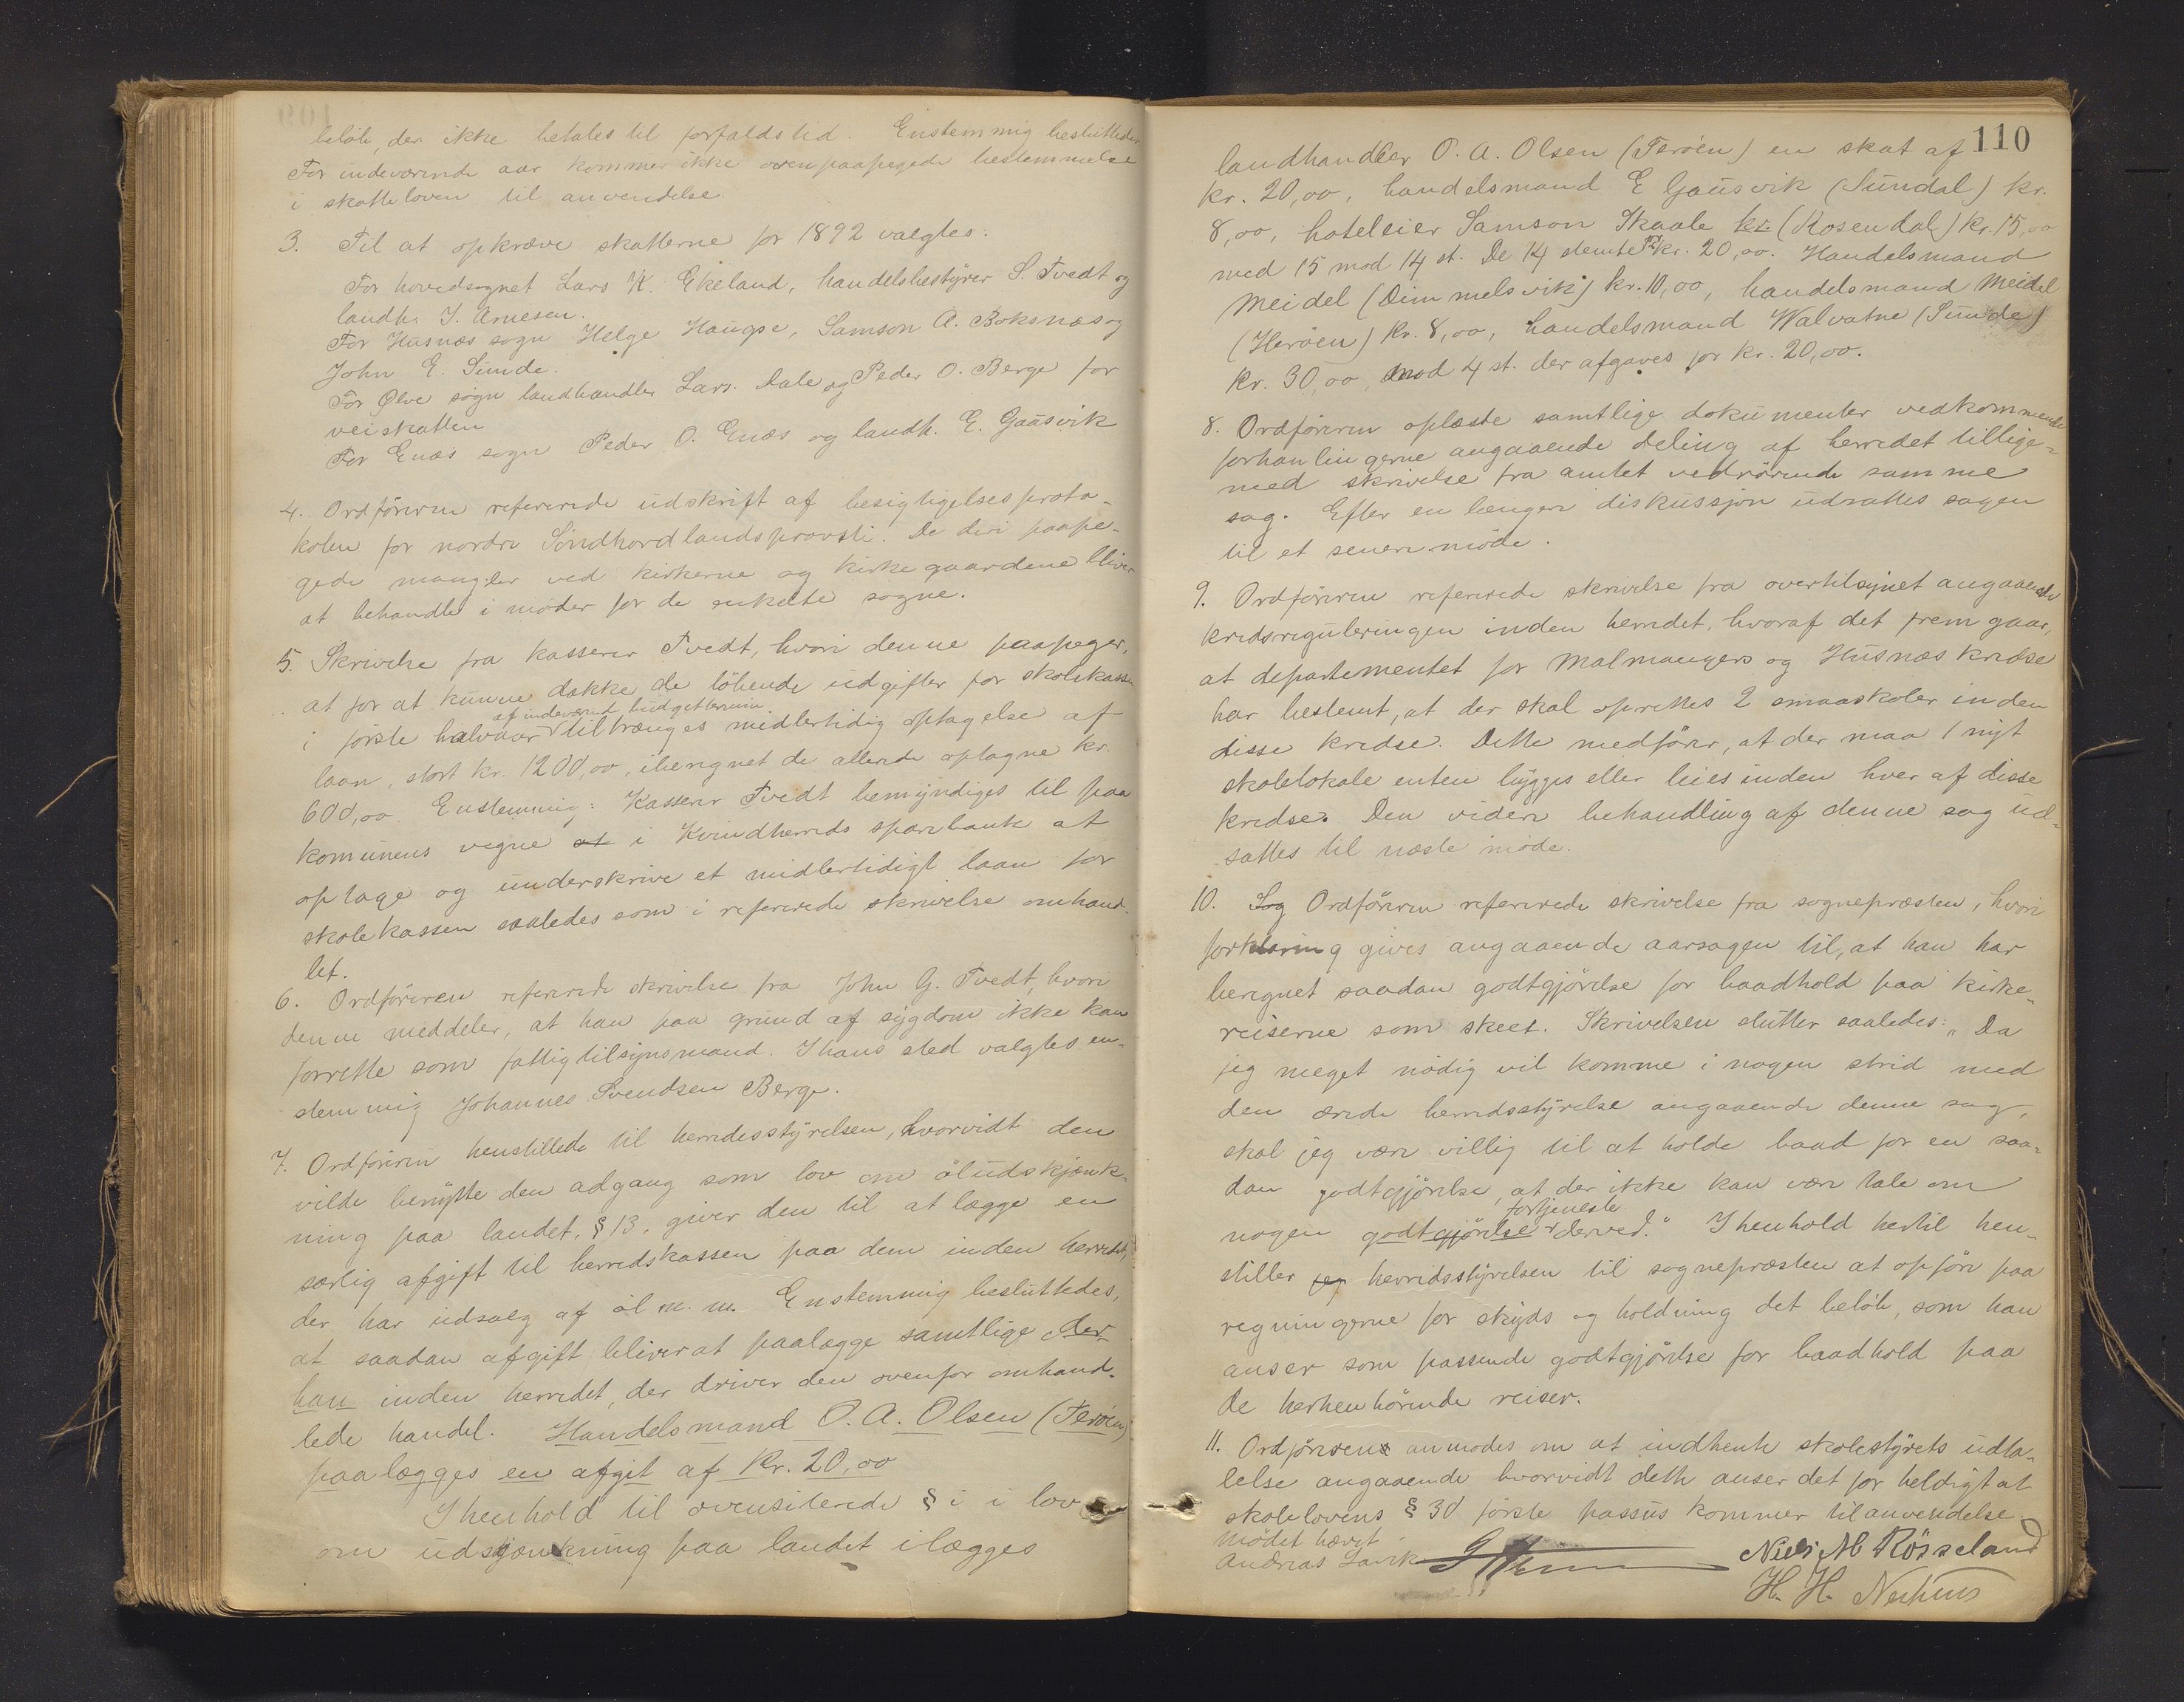 beløb, der ikke betales til forfaldstid. Enstemmig besluttedes
For indeværende aar kommer ikke ovenpaapegede bestemmelse
i skatteloven til anvendelse.
3. Til at opkræve skatterne for 1892 valgtes:
For hovedsognet Lars K. Ekeland, handelsbestyrer S. Tvedt og
landh. J. Arnesen.
For Husnæs sogn Helge Haugse, Samson A. Boksnæs og
John E. Sunde.
For Ølve sogn landhandler Lars. Dale og Peder O. Berge for
veiskatten
For Enæs sogn Peder O. Enæs og landh. E. Gausvik
4. Ordføreren refererede udskrift af besigtigelsesproto-
kolen for nordre Søndhordlandsprovsti. De deri paape-
gede mangler ved kirkerne og kirkegaardene bliver
at behandle i møder for de enkelte sogne.
5. Skrivelse fra kasserer Tvedt, hvori denne paapeger,
at for at kunne dække de løbende udgifter for skolekassen
af indeværend budgettermin
i første halvaar tiltrænges midlertidig optagelse af
laan, stort kr. 1200,00, iberegnet de allerede optagne kr.
600,00. Enstemmig: Kasserer Tvedt bemyndiges til paa
komunens vegne at i Kvindherreds sparebank at
optage og underskrive et midlertidigt laan for
skolekassen saaledes som i refererede skrivelse omhand-
let.
6. Ordføreren refererede skrivelse fra John G. Tvedt, hvori
denne meddeler, at han paa grund af sygdom ikke kan
forrette som fattigtilsynsmand. I hans sted valgtes en-
stemmig Johannes Svendsen Berge.
7. Ordføreren henstillede til herredsstyrelsen, hvorvidt den
vilde benytte den adgang som lov om øludskjænk-
ning paa landet, § 13, giver den til at lægge en
særlig afgift til herredskassen paa dem inden herredet,
der har udsalg af øl m.m. Enstemmig besluttedes,
at saadan afgift bliver at paalægge samtlige der
han inden herredet, der driver den ovenfor omhand-
lede handel. Handelsmand O. A. Olsen (Terøen)
paalægges en afgit af Kr. 20,00
I henhold til ovensiterede § i i lov
om udsjænkning paa landet ilægges
110
landhandler O. A. Olsen (Terøen) en skat af
kr. 20,00, handelsmand E Gausvik (Sundal) kr.
8,00, hoteleier Samson Skaale kr. (Rosendal) kr. 15,00
med 15 mod 14 st. De 14 stemte kr. 20,00. Handelsmand
Meidel (Dimmelsvik) kr. 10,00, handelsmand Meidel
(Herøen) kr. 8,00, handelsmand Valvatne (Sunde)
kr. 30,00, mod 4 st. der afgaves for kr. 20,00.
8. Ordføreren oplæste samtlige dokumenter vedkommende
forhanlingerne angaaende deling af herredet tillige-
med skrivelse fra amtet vedrørende samme
sag. Efter en længere diskussjon udsattes sagen
til et senere møde.
9. Ordføreren refererede skrivelse fra overtilsynet angaaende
kredsreguleringen inden herredet, hvoraf det fremgaar,
at departementet for Malmangers og Husnæs kredse
har bestemt, at der skal oprettes 2 smaaskoler inden
disse kredse. Dette medfører, at der maa 1 nyt
skolelokale enten bygges eller leies inden hver af disse
kredse. Den videre behandling af denne sag ud-
sattes til næste møde.
10. Sog Ordføreren refererede skrivelse fra sognepræsten, hvori
forklaring gives angaaende aarsagen til, at han har
beregnet saadan godtgjørelse for baadhold paa kirke-
reiserne som skeet. Skrivelsen slutter saaledes: „Da
jeg meget nødig vil komme i nogen strid med
den ærede herredsstyrelse angaaende denne sag,
skal jeg være villig til at holde baad for en saa-
dan godtgjørelse, at der ikke kan være tale om
fortjeneste
nogen godtgjørelse derved." I henhold hertil hen-
stiller jeg herredsstyrelsen til sognepræsten at opføre paa
regningerne for skyds og holdning det beløb, som han
anser som passende godtgjørelse for baadhold paa
de herhenhørende reiser.
11. Ordføreren anmodes om at indhente skolestyrets udta-
lelse angaaende hvorvidt dette anser det for heldigt at
skolelovens § 30 første passus kommer til anvendelse.
Mødet hævet
Andreas Larik Niels M Røsseland
H. H. Neshus